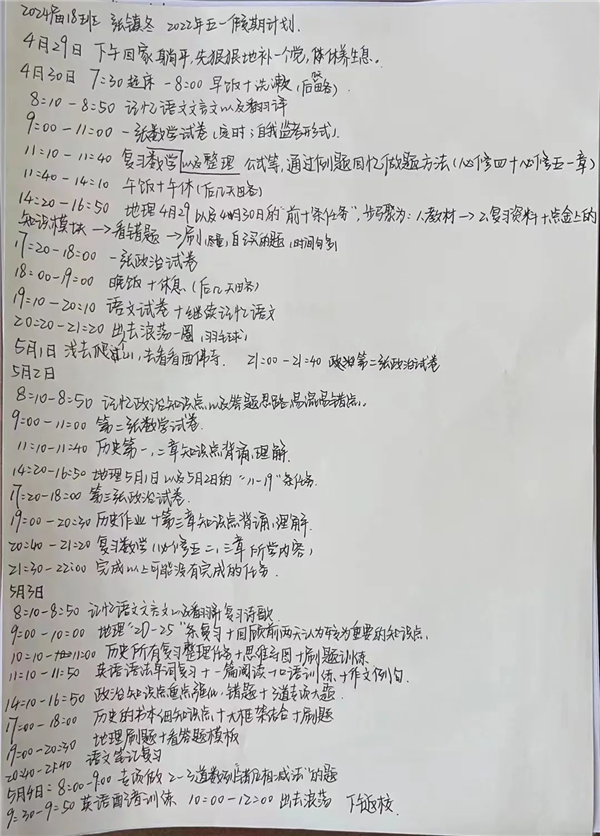 2024届18班 张镇冬 2022年五一假期计划.
4月29日 下午回家躺平,先狠狠地补一个觉,休养生息。
4月30日 7:30起床-8:00早饭+洗漱(后略)
8:10-8:50 记忆语文文言文以及翻译
9:00-11:00 一张数学试卷(定时;自我监考形式).
11:10-11:40 复习数学以及整理 公式等,通过例题回忆做题方法(必修四+必修五一章)
11:40-14:10 午饭+午休(后几天略)
14:20-16:50 地理4月29以及4月30日的"前十条任务",步骤为:1.教材→2.复习资料+点金上的
知识模块→看错题→刷题,自买的题,时间句多)
17:20-18:00 一张政治试卷
18:00-19:00 晚饭+休息(后几天略)
19:10-20:10 语文试卷+继续记忆语文
20:20-21:20 出去浪荡一圈(羽毛球)
5月1日 浅去爬山,去看看西佛寺. 21:00-21:40 政治第二张政治试卷
5月2日
8:10-8:50 记忆政治知识点以及答题思路易混易错点.
9:00-11:00 第二张数学试卷.
11:10-11:40 历史第一,二章知识点背诵,理解.
14:20-16:50 地理5月1日以及5月2日的"11-19"条任务.
17:20-18:00 第三张政治试卷.
19:00-20:30 历史作业+第三章知识点背诵,理解.
20:40-21:20 复习数学(必修五二,三章所学内容)
21:30-22:00 完成以上可能没有完成的任务.
5月3日
8:10-8:50 记忆语文文言文以及翻译复习诗歌.
9:00-10:00 地理"20-25"条复习+回顾前两天认为较为重要的知识点.
10:10-11:00 历史所有复习整理任务+思维导图+刷题训练
11:10-11:50 英语语法单词复习+一篇阅读+口语训练+作文例句.
14:10-16:50 政治知识点重点强化,错题+3道专项大题.
17:00-18:00 历史的书本细知识点+大框架结合+刷题
19:00-20:30 地理刷题+看答题模板
20:40-21:40 语文笔记复习
5月4日:8:00-9:00 专项做2-3道数列"错位相减法"的题
9:30-9:50 英语配音训练 10:00-12:00 出去浪荡 下午返校.